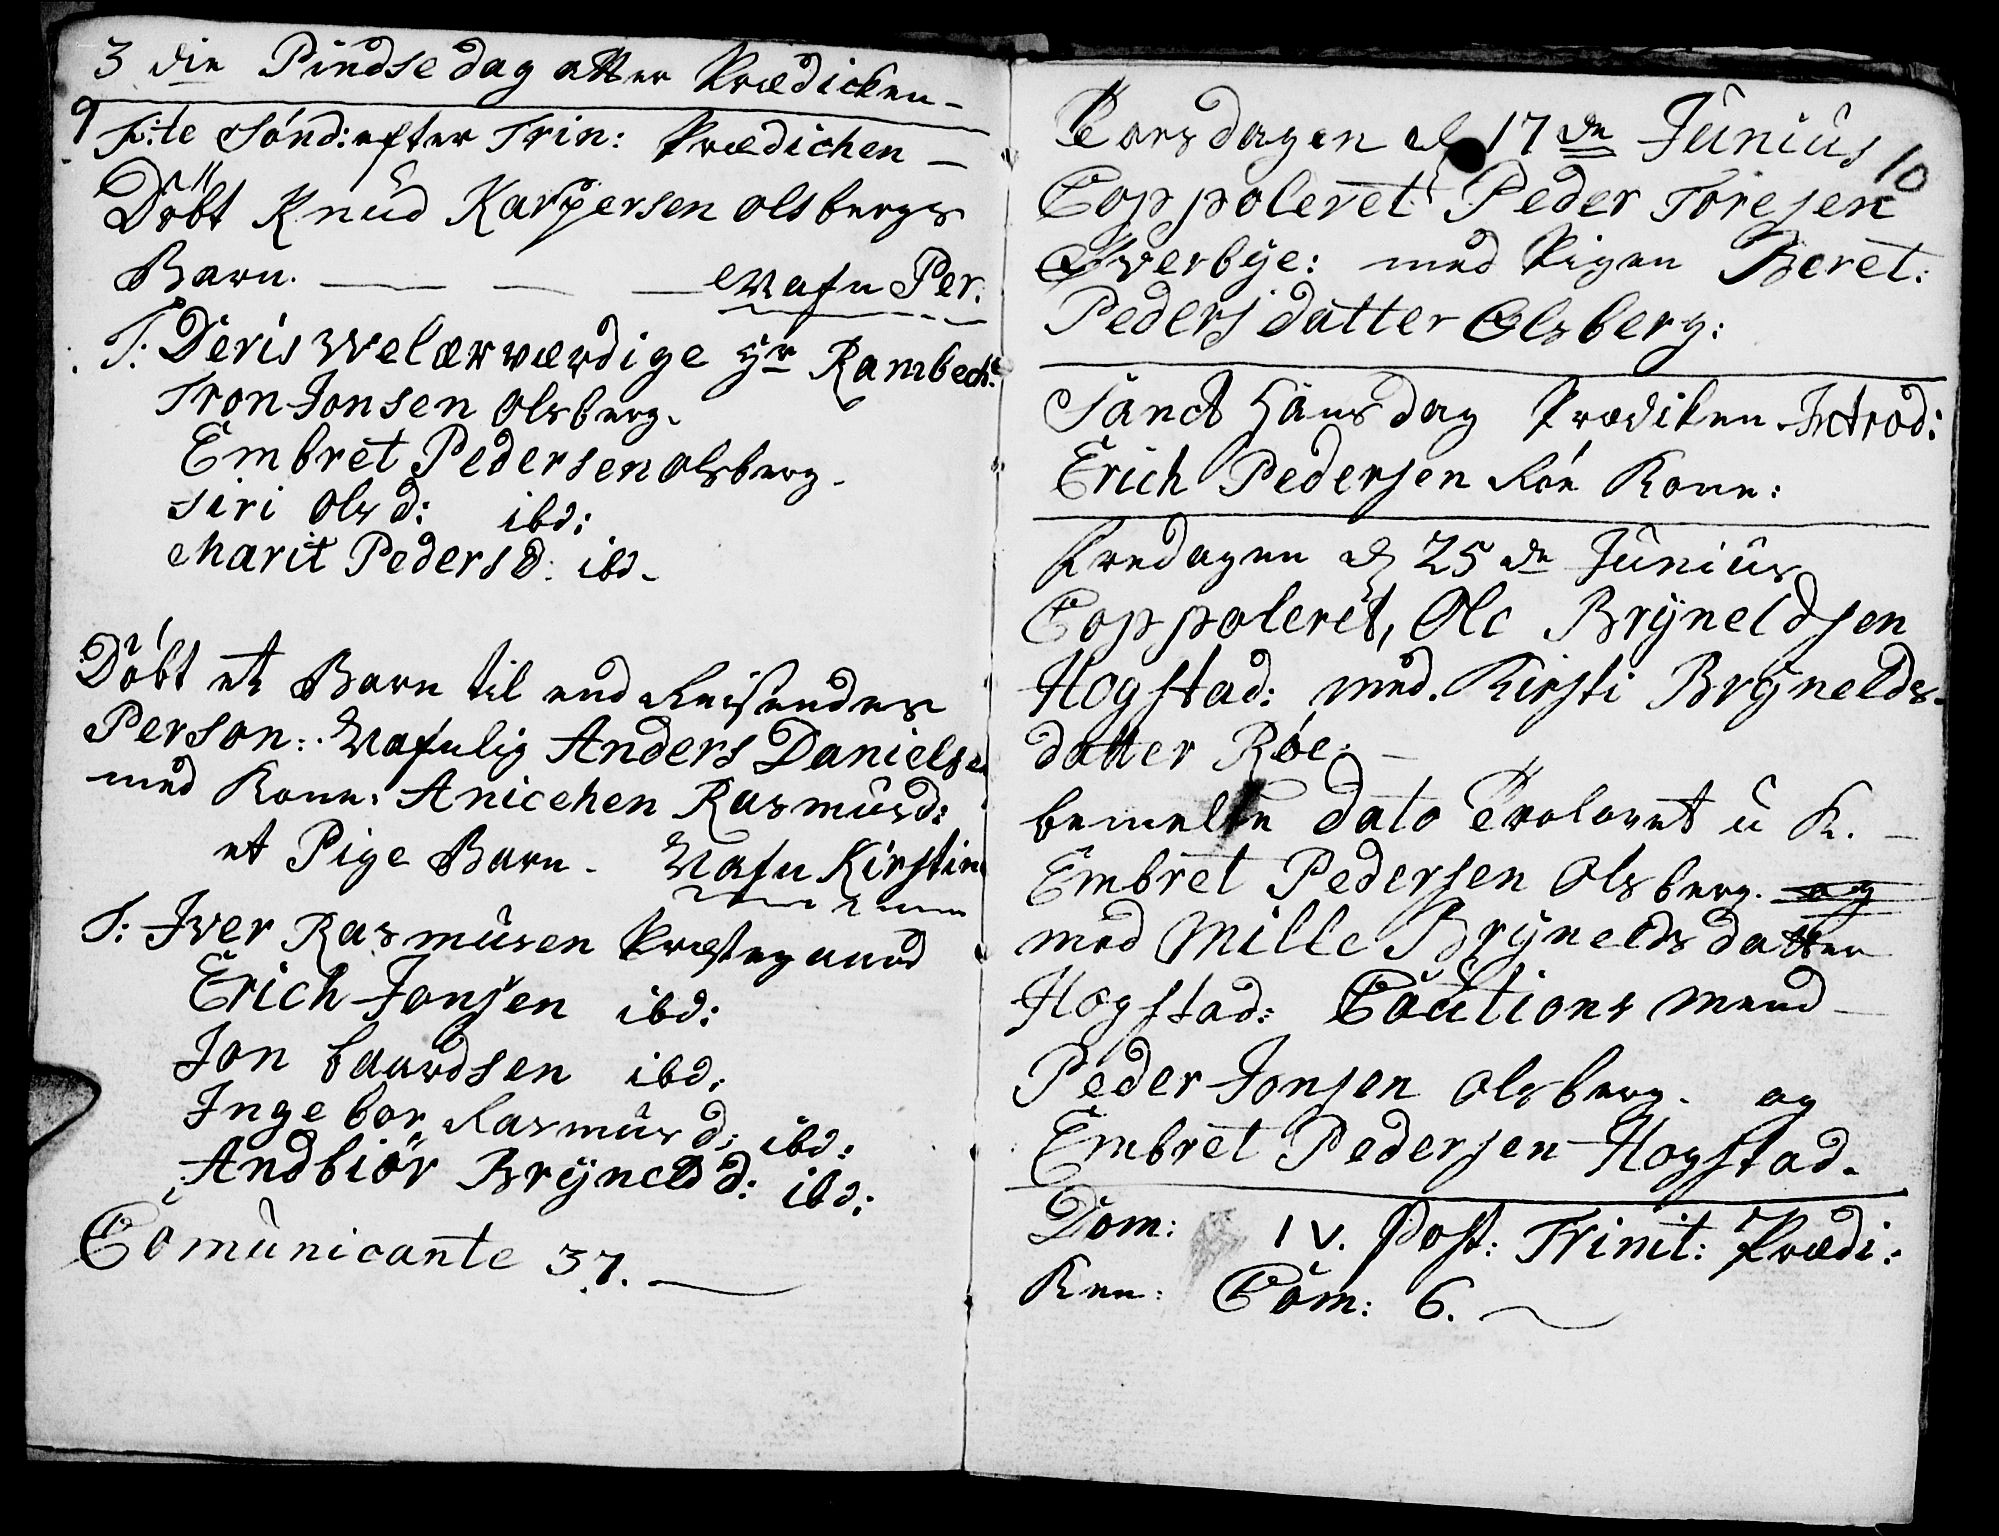 3 die Pindsedag atter Prædicken -
9
F:te Sönd: efter Trin: Prædichen -
Döbt Knud Karpersen Olsbergs
Barn. — — — Nafn Per.
T: Deris Welærværdige Hr Rambech:
Tron Jonsen Olsberg.
Embret Pedersen Olsberg.
Siri Olsd: ibd:
Marit Pedersd. ibd.
Döbt et Barn til end Reisendes
Person: Nafnlig Anders Danielse
med Kone: Anicehen Rasmusd:
et Pige Barn. Nafn Kirstin
T: Iver Rasmusen Præstegaard
Erich Jonsen ibd:
Jon Baardsen ibd.
Ingebor Rasmusd: ibd:
Andbiör Bryneldd: ibd:
Comunicante 37. —
10
Torsdagen d 17de Junius
Coppoleret Peder Toresen
Øverbye: med Pigen Beret:
Peders datter Olsberg:
Sanct Hans dag Prædiken Introd:
Erich Pedersen Röe Kone:
Fredagen d 25de Junius
Coppoleret, Ole Bryneldsen
Hogstad: med. Kirsti Brynelds-
datter Röe. —
bemelte dato Trolovet u K. —
Embret Pedersen Olsberg. og
med Mille Brynelds datter
Hogstad: Cautions mend —
Peder Jonsen Olsberg. og
Embret Pedersen Hogstad.
Dom: IV. Post: Trinit: Prædi:
Ken: Com: 6. —